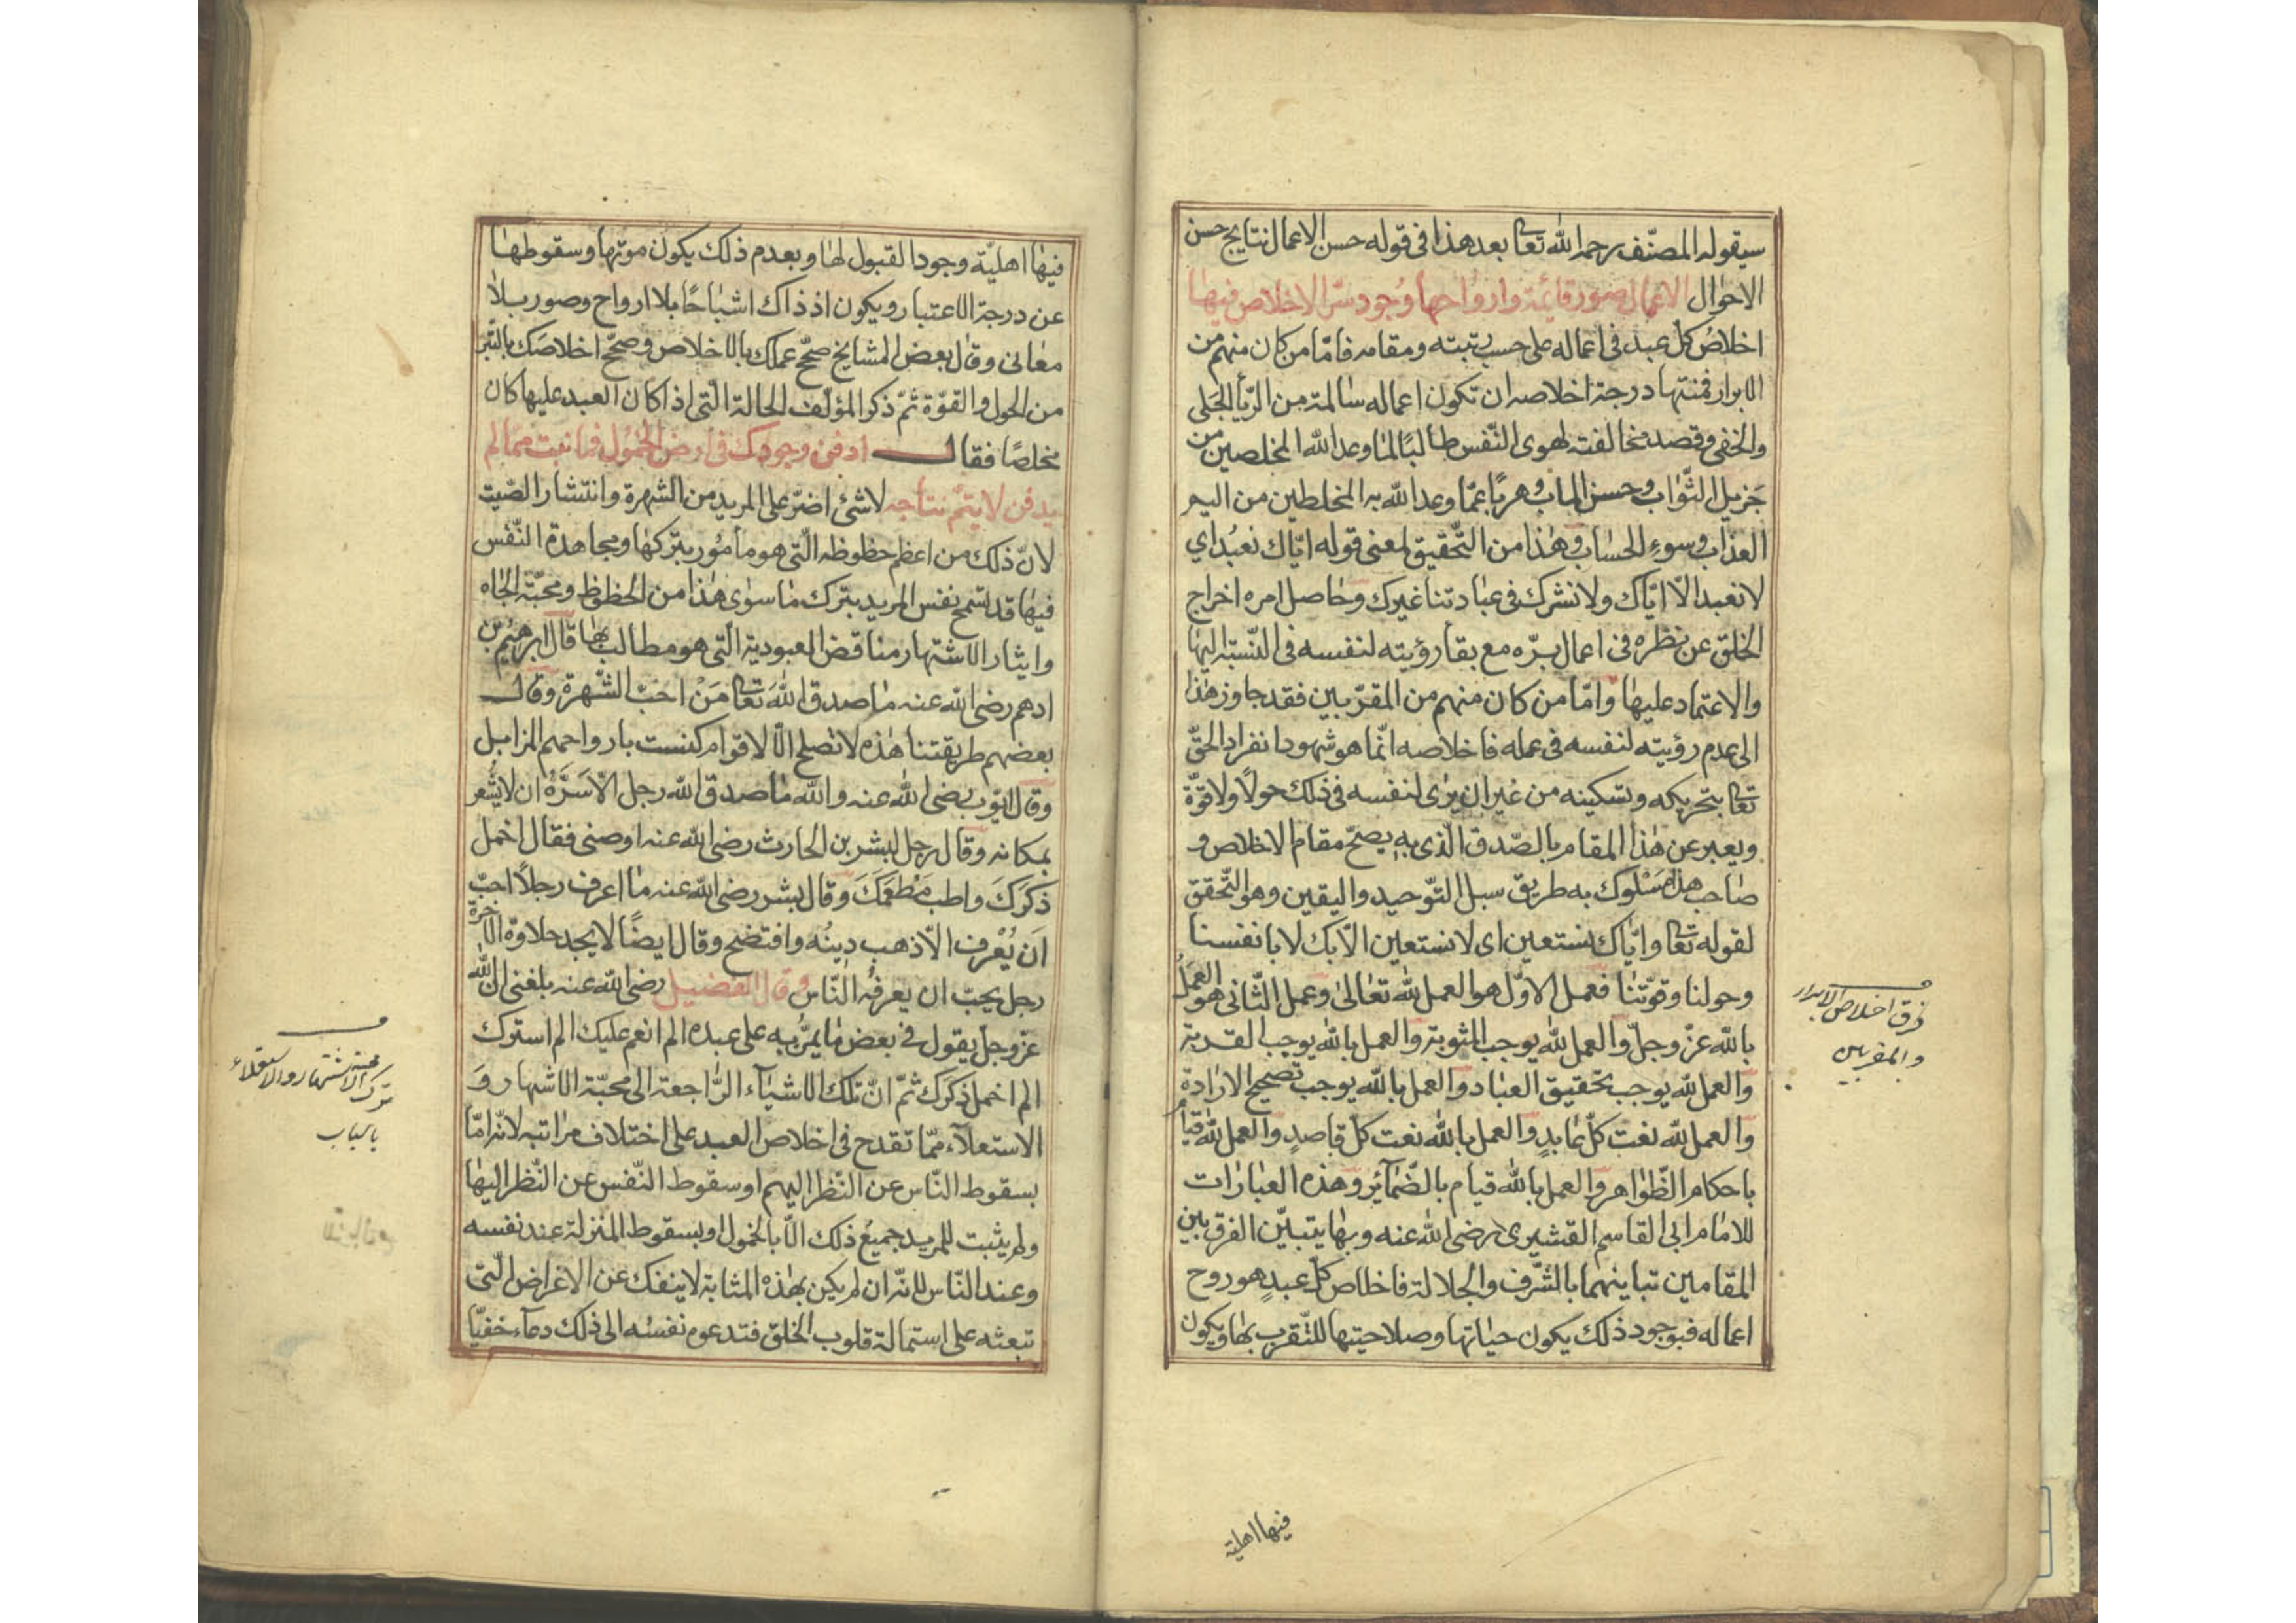 سيقوله المصنّف رحمه الله تعالى بعد هذا فى قوله حسن الاعمال نتايج حسن
الاحوال الاعمال صور قائمة وارواحها وجود سرّ الاخلاص فيها
اخلاص كل عبد فى اعماله على حسب رتبته ومقامه فامّا من كان منهم من
الابرار فمنتها درجة اخلاصه ان تكون اعماله سالمة من الريآ الجلى
والخفى وقصد مخالفته لهوى النّفس طالبًا لما وعد الله المخلصين من
جزيل الثّواب وحسن الماب وهربًا عمّا وعد الله به المخلطين من اليم
العذاب وسوء الحساب وهذا من التّحقيق لمعنى قوله ايّاك نعبد اي
لا نعبد الّا ايّاك ولا نشرك فى عبادتنا غيرك وحاصل امره اخراج
الخلق عن نظره فى اعمال برّه مع بقآ رؤيته لنفسه فى النّسبة اليها
والاعتماد عليها وامّا من كان منهم من المقرّبين فقد جاوز هذا
الى عدم رؤيته لنفسه فى عمله فاخلاصه انّما هو شهود انفراد الحقّ
تعالى بتحريكه وتسكينه من غير ان يرى لنفسه فى ذلك حولًا ولا قوّة
ويعبر عن هذا المقام بالصّدق الّذى به يصحّ مقام الاخلاص و
صاحب هذا مسلوك به طريق سبل التّوحيد واليقين وهو التّحقق
لقوله تعالى وايّاك نستعين اى لا نستعين الّا بك لا بانفسنا
وحولنا وقوّتنا فعمل الاوّل هو العمل لله تعالى وعمل الثّانى هو العمل
بالله عزّ وجلّ والعمل لله يوجب المثوبة والعمل بالله يوجب القربة
والعمل لله يوجب تحقيق العباد والعمل بالله يوجب تصحيح الارادة
والعمل لله نعت كلّ عابد والعمل بالله نعت كل قاصد والعمل لله قيام
باحكام الظّواهر والعمل بالله قيام بالضّمآئر وهذه العبارات
للامام ابى القاسم القشيرى رضى الله عنه وبها يتبيّن الفرق بين
المقامين تباينهما بالشّرف والجلالة فاخلاص كلّ عبد هو روح
اعماله فبوجود ذلك يكون حياتها وصلاحيتها للتّقرب بها ويكون
فرق اخلاص الابرار
والمقربين
فيها اهلية
فيها اهليّة وجود القبول لها وبعدم ذلك يكون موتها وسقوطها
عن درجة الاعتبار ويكون اذ ذاك اشباحًا بلا ارواح وصور بلا
معانى وقال بعض المشايخ صحّح عملك بالاخلاص وصحّح اخلاصك بالتّبرّ
من الحول والقوّة ثمّ ذكر المؤلّف الحالة الّتى اذا كان العبد عليها كان
مخلصًا فقال ادفن وجودك فى ارض الخمول فما نبت ممّا لم
يدفن لا يتمّ نتاجه لا شئ اضرّ على المريد من الشهرة وانتشار الصّيت
لانّ ذلك من اعظم حظوظه الّتى هو مأمور بتركها ومجاهدة النّفس
فيها قد تسمح نفس المريد بترك ما سوى هذا من الحظوظ ومحبّة الجاه
وايثار الاشتهار مناقض العبودية الّتى هو مطالب بها قال ابرهيم بن
ادهم رضى الله عنه ما صدق الله تعالى من احبّ الشّهرة وقال
بعضهم طريقتنا هذه لا تصلح الّا لاقوام كنست بارواحهم المزابل
وقال ايّوب رضى الله عنه والله ما صدق الله رجل الّا سرّه ان لا يشعر
بمكانه وقال رجل لبشر بن الحارث رضى الله عنه اوصنى فقال اخمل
ذكرك واطب مطعمك وقال بشر رضى الله عنه ما اعرف رجلًا احبّ
ان يُعْرف الّا ذهب دينُه وافتضح وقال ايضًا لا يجد حلاوة الآخرة
رجل يحبّ ان يعرفه النّاس وقال الفضيل رضى الله عنه بلغنى انّ الله
عزّ وجلّ يقول فى بعض ما يمنّ به على عبده الم انعم عليك الم استرك
الم اخمل ذكرك ثمّ انّ تلك الاشيآء الرّاجعة الى محبّة الاشهار وَ
الاستعلآء ممّا تقدح فى اخلاص العبد على اختلاف مراتبه لانّه امّا
بسقوط النّاس عن النّظر اليهم او سقوط النّفس عن النّظر اليها
ولم يثبت للمريد جميعُ ذلك الّا بالخمول وبسقوط المنزلة عند نفسه
وعند النّاس لانّه ان لم يكن بهذه المثابة لا ينفك عن الاغراض الّتى
تبعثه على استمالة قلوب الخلق فتدعوه نفسُه الى ذلك دعآء خفيّا
ترك محبة الاشتهار والاستعلاء